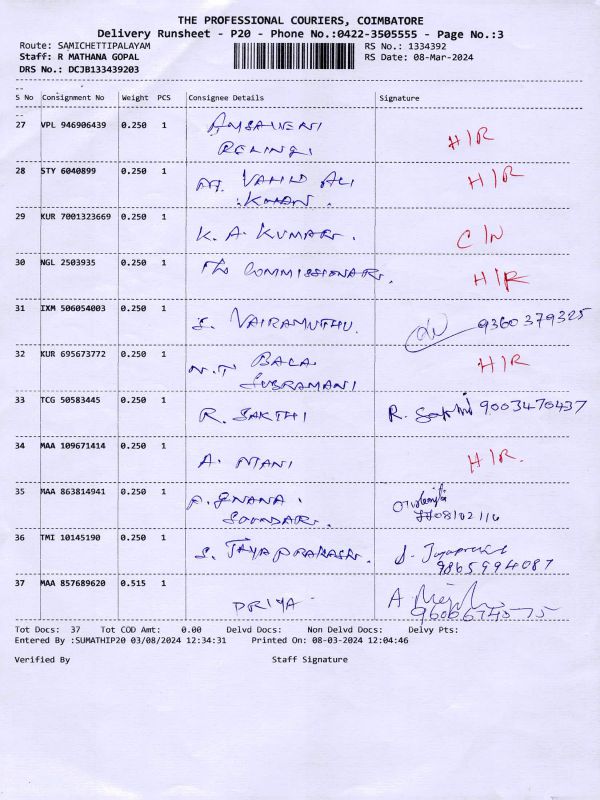 THE PROFESSIONAL COURIERS, COIMBATORE
Delivery Runsheet - P20 - Phone No.:0422-3505555 - Page No.:3
Route: SAMICHETTIPALAYAM RS No.: 1334392
Staff: R MATHANA GOPAL RS Date: 08-Mar-2024
DRS No.: DCJB133439203
S No Consignment No Weight PCS Consignee Details Signature
27 VPL 946906439 0.250 1 H/R
28 STY 6040899 0.250 1 M. VAHID ALI H/R
KHAN.
29 KUR 7001323669 0.250 1 K. A. KUMAR. C/N
30 NGL 2503935 0.250 1 The COMMISSIONAR. H/R
31 IXM 506054003 0.250 1 S. VAIRAMUTHU. 9360379325
32 KUR 695673772 0.250 1 N.T BALA H/R
SUBRAMANI
33 TCG 50583445 0.250 1 R. SAKTHI R. Sakthi 9003470437
34 MAA 109671414 0.250 1 A. MANI H/R.
35 MAA 863814941 0.250 1 P. GNANA.
SOUNDARI.
36 TMI 10145190 0.250 1 S. JAYAPRAKASH. S. Jayaprakash
9865994087
37 MAA 857689620 0.515 1 PRIYA
Tot Docs: 37 Tot COD Amt: 0.00 Delvd Docs: Non Delvd Docs: Delvy Pts:
Entered By :SUMATHIP20 03/08/2024 12:34:31 Printed On: 08-03-2024 12:04:46
Verified By Staff Signature